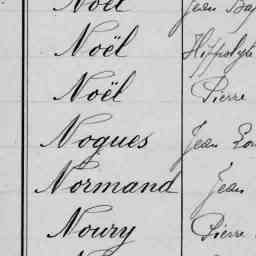 Noël Jean
Noël Hippolyte
Noël Pierre
Nogues Jean
Normand Jean
Noury Pierre